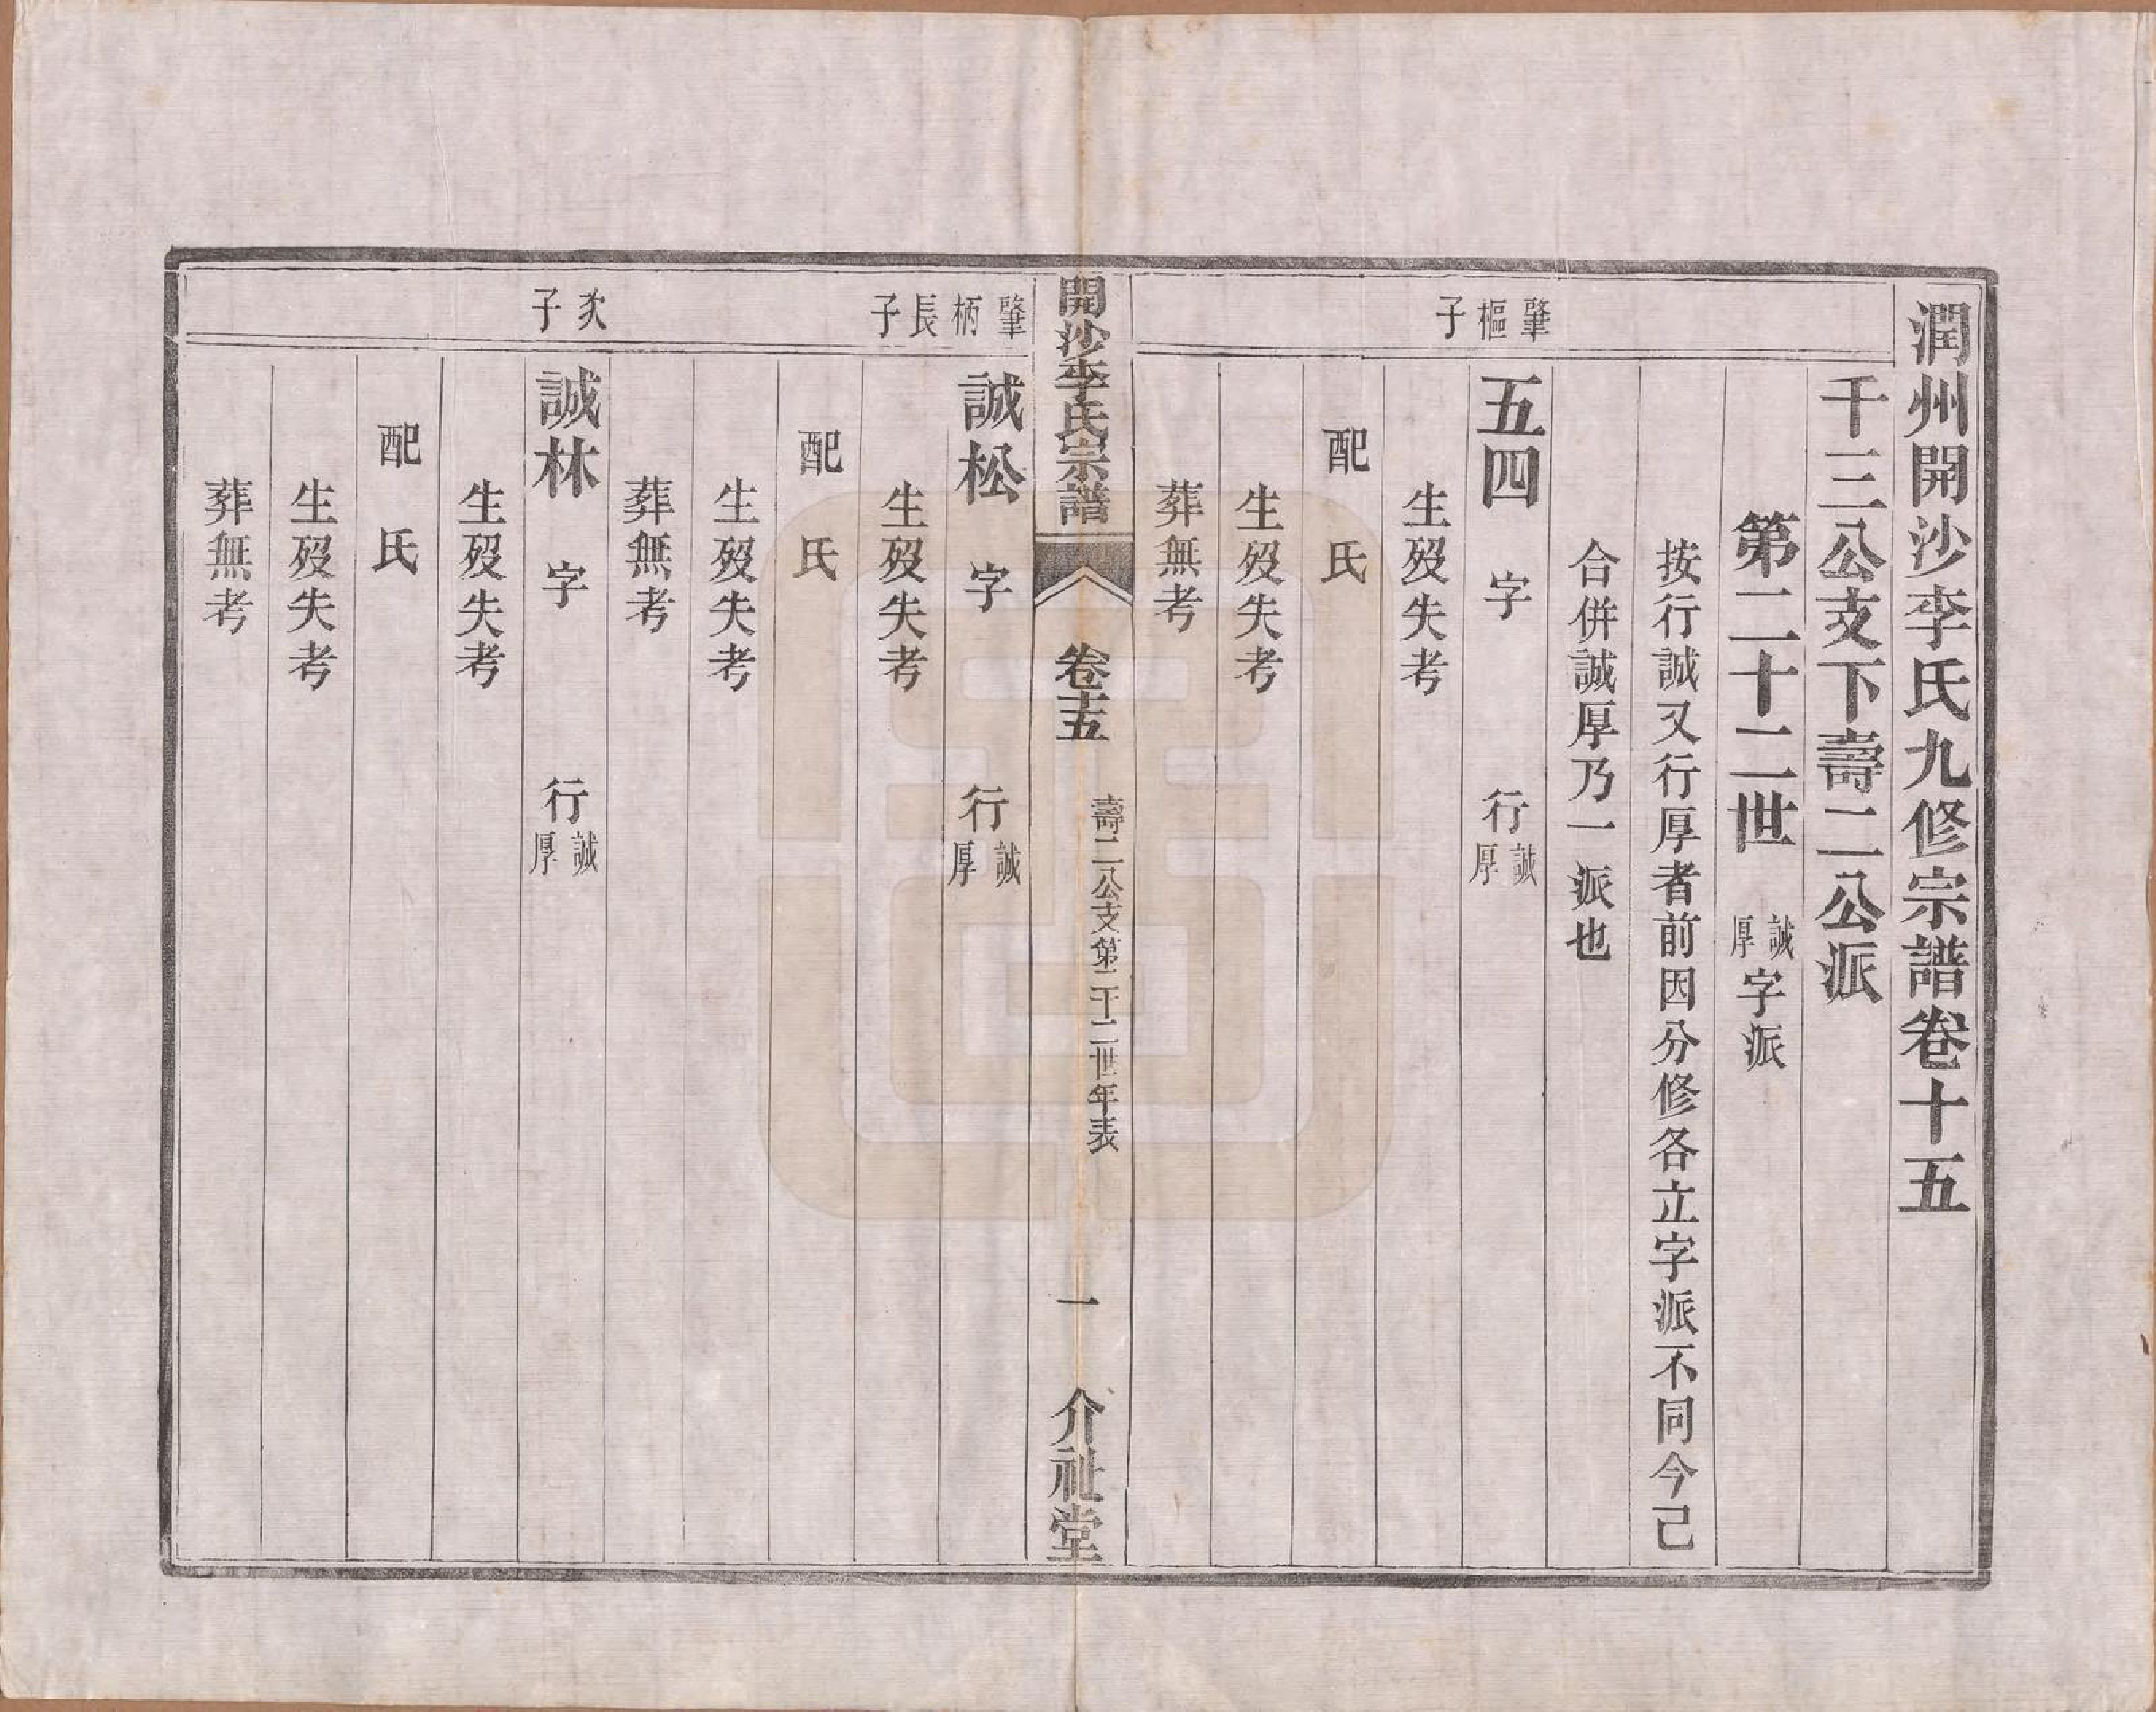 潤州開沙李氏九修宗譜卷十五
千三公支下壽二公派
第二十二世 誠厚字派
按行誠又行厚者前因分修各立字派不同今己
合併誠厚乃一派也
肇樞子
五四 字 行誠厚
生歿失考
配 氏
生歿失考
葬無考
開沙李氏宗譜 卷十五 壽二公支第二十二世年表 一 介祉堂
肇柄長子
誠松 字 行誠厚
生歿失考
配 氏
生歿失考
葬無考
次子
誠林 字 行誠厚
生歿失考
配 氏
生歿失考
葬無考